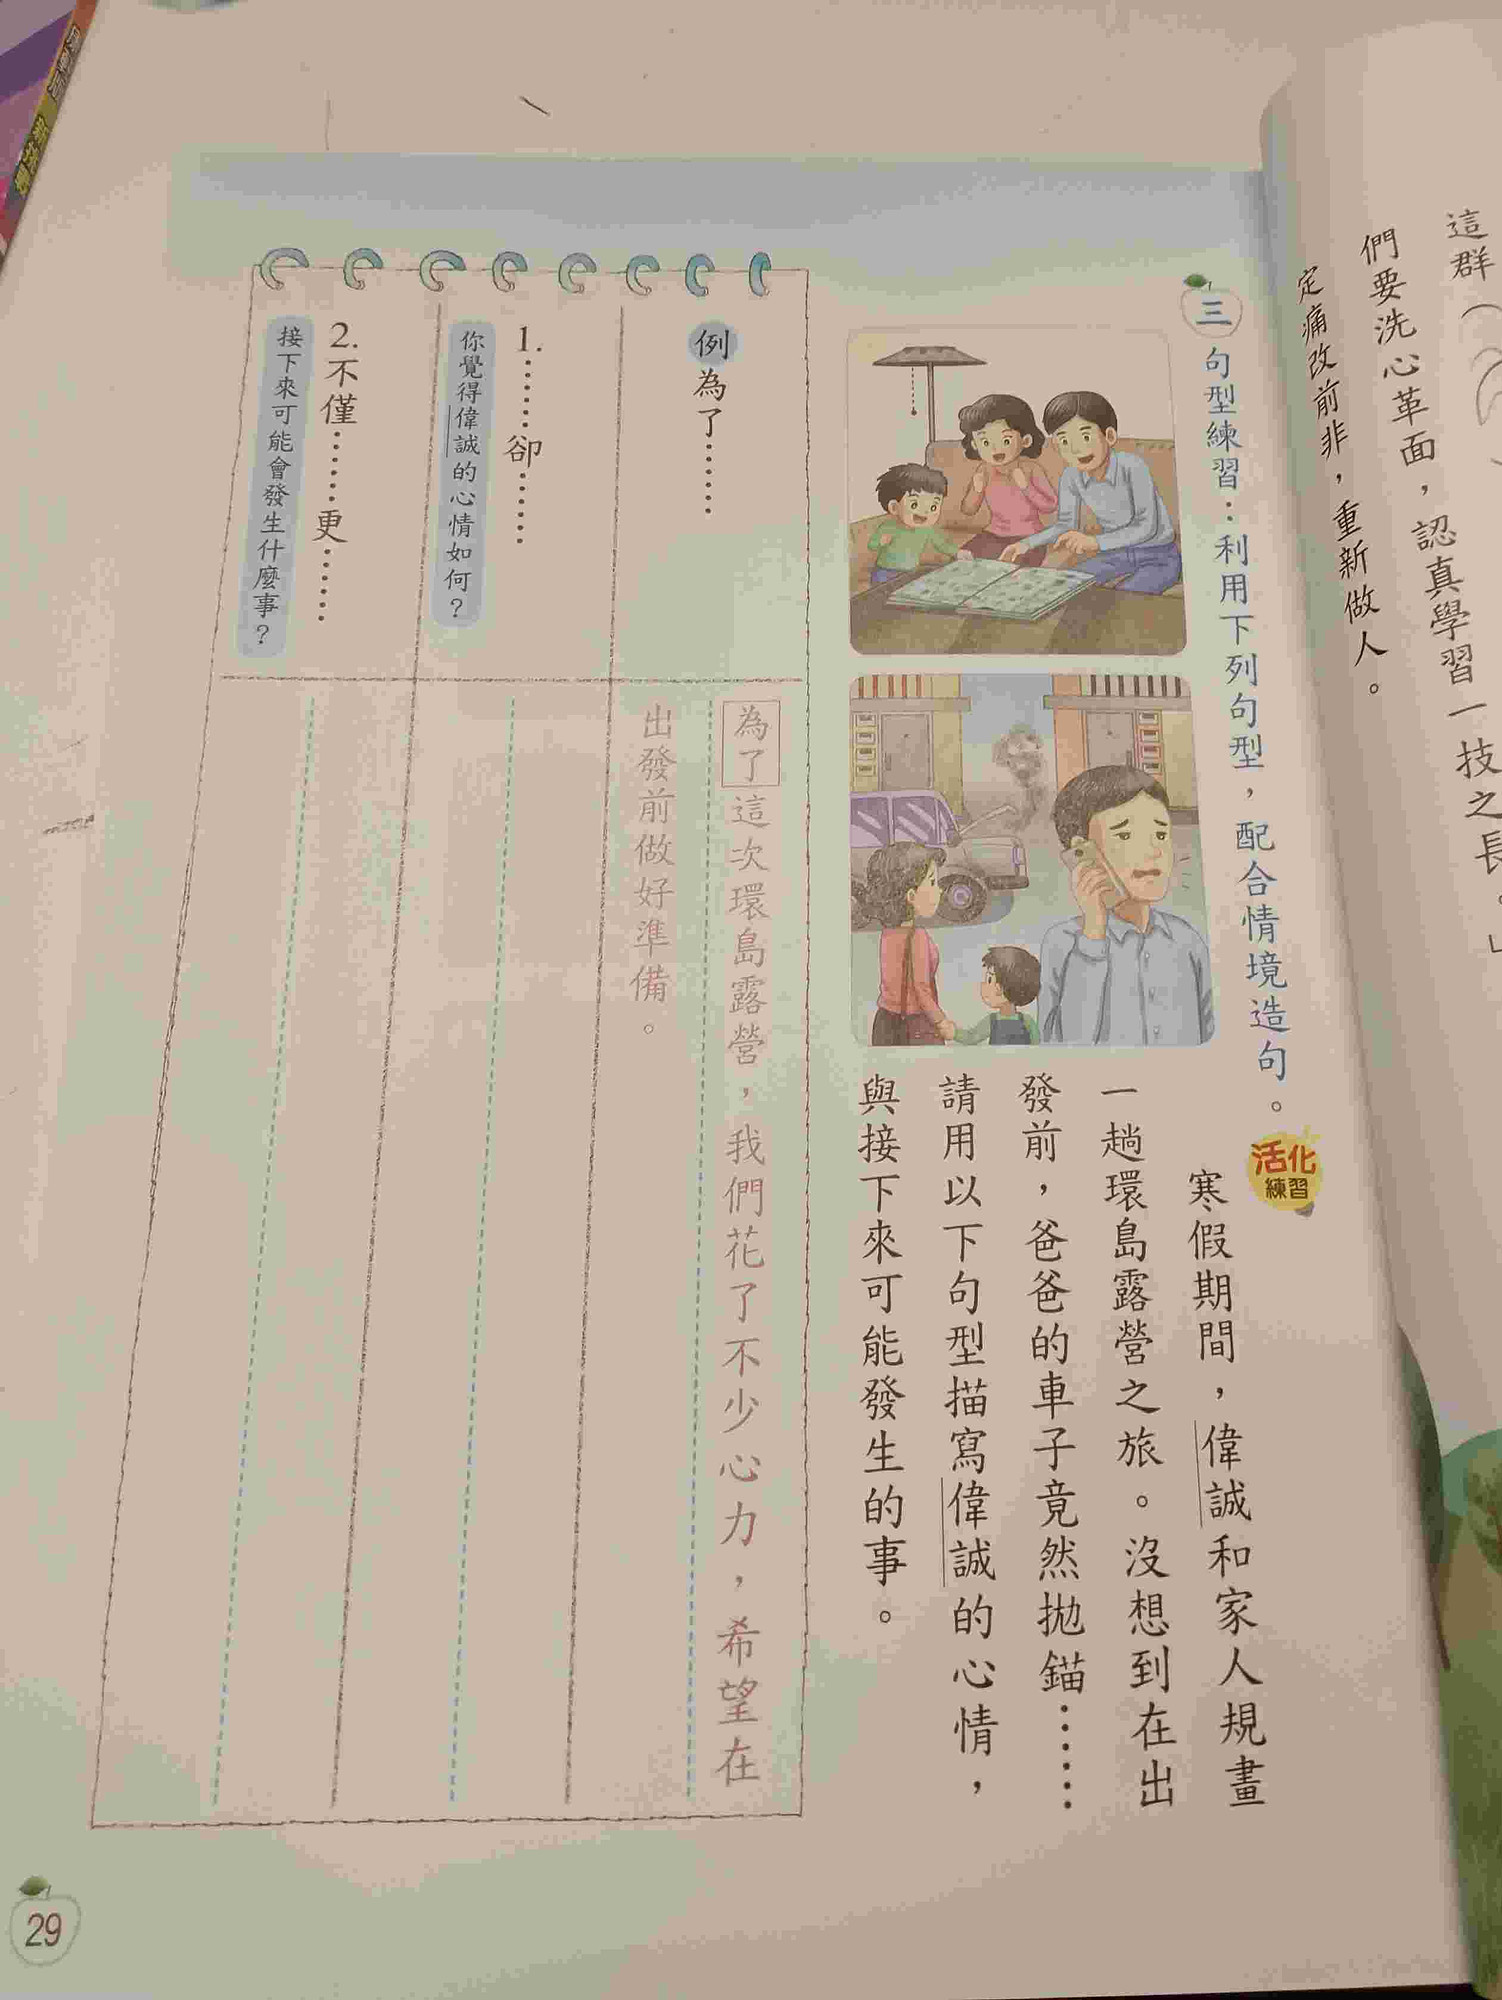 這群
們要洗心革面，認真學習一技之長。」
定痛改前非，重新做人。
三 句型練習：利用下列句型，配合情境造句。
活化
練習
寒假期間，偉誠和家人規畫
一趟環島露營之旅。沒想到在出
發前，爸爸的車子竟然拋錨……
請用以下句型描寫偉誠的心情，
與接下來可能發生的事。
例 為了……
為了這次環島露營，我們花了不少心力，希望在
出發前做好準備。
1.……卻……
你覺得偉誠的心情如何？
2.不僅……更……
接下來可能會發生什麼事？
29